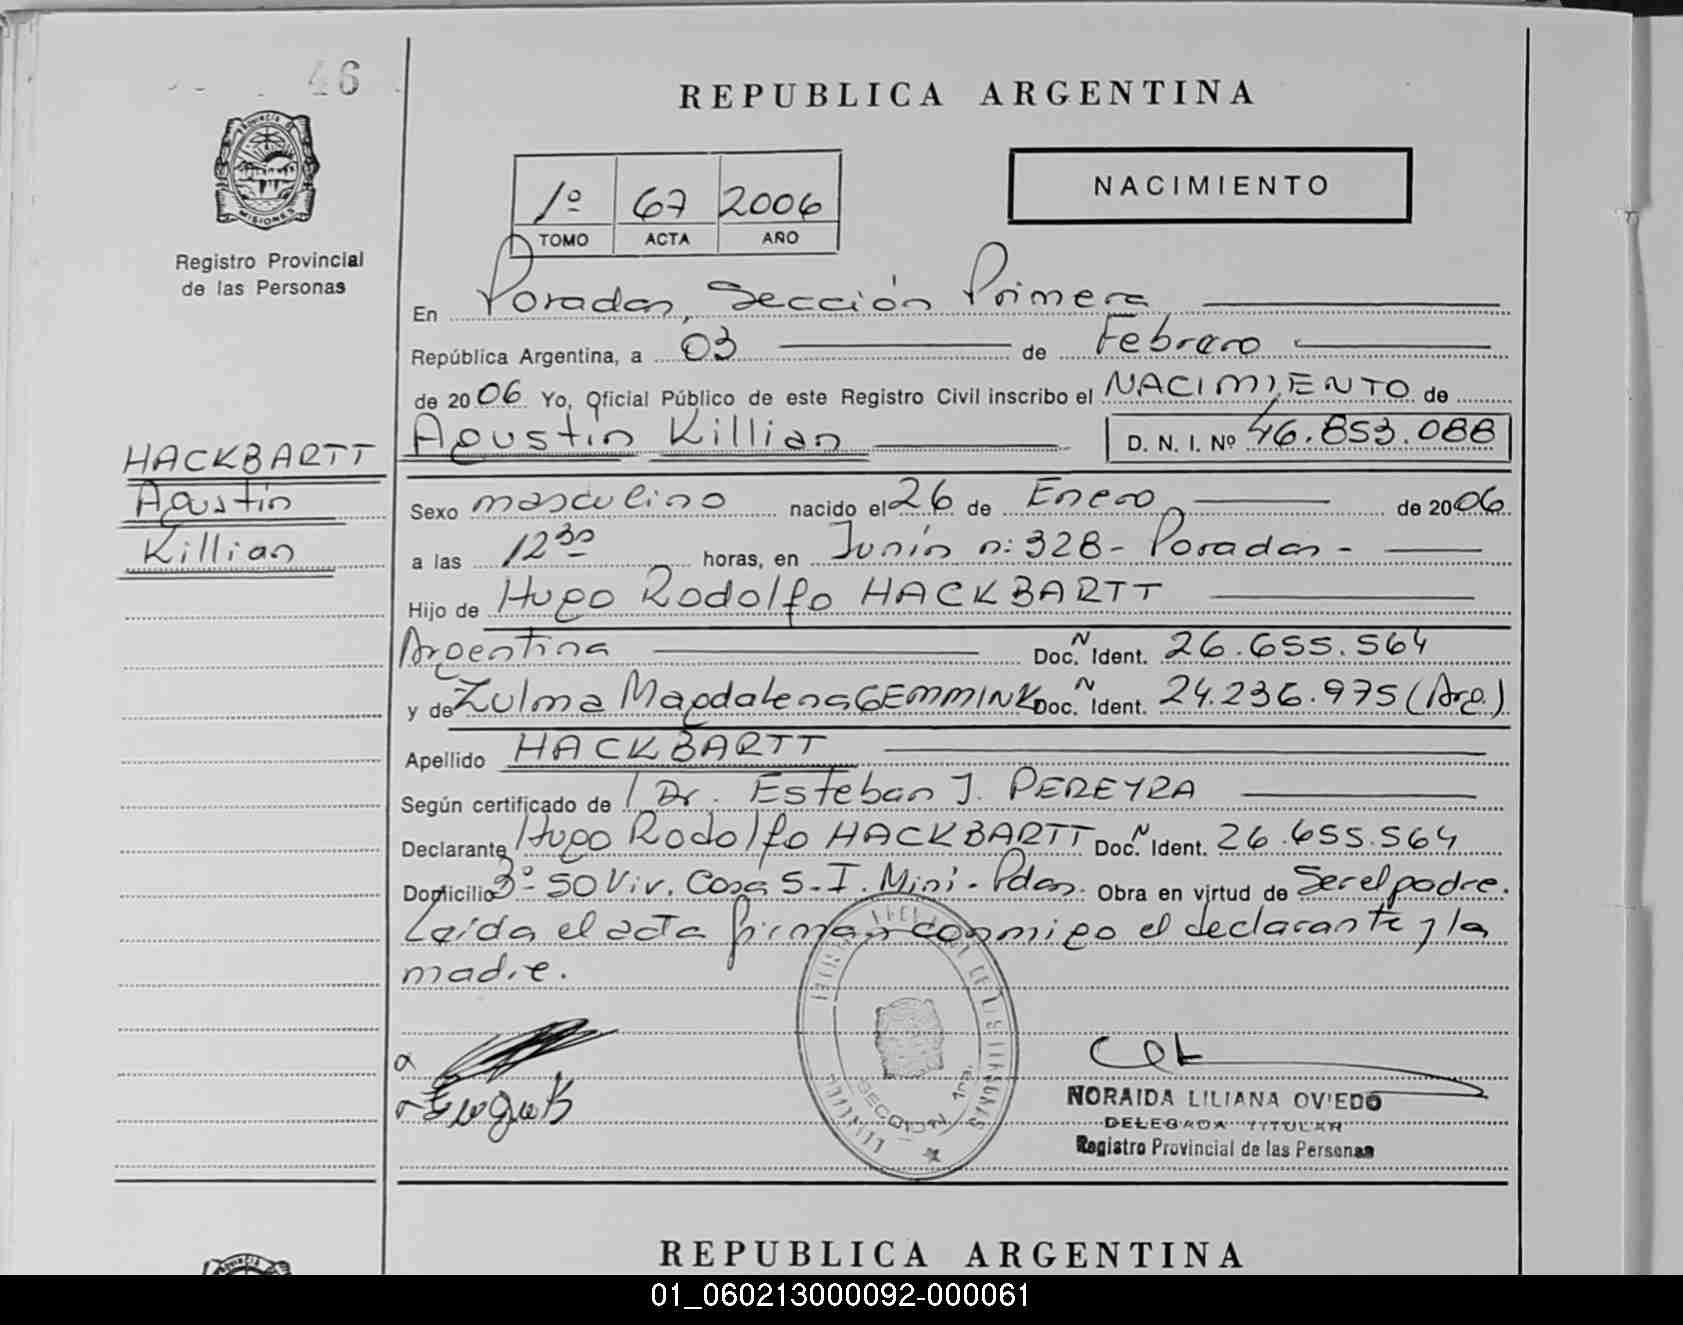 46
REPUBLICA ARGENTINA
PROVINCIA DE
MISIONES
Registro Provincial
de las Personas
1º 67 2006
TOMO ACTA AÑO
NACIMIENTO
En Posadas, Sección Primera
República Argentina, a 03 de Febrero
de 2006 Yo, Oficial Público de este Registro Civil inscribo el NACIMIENTO de
Agustín Killian D. N. I. Nº 46.853.088
HACKBARTT
Agustín
Killian
Sexo masculino nacido el 26 de Enero de 2006
a las 12 30 horas, en Junín n: 328- Posadas-
Hijo de Hugo Rodolfo HACKBARTT
Argentina Doc. N Ident. 26.655.564
y de Zulma Magdalena GEMMINK Doc. N Ident. 24.236.975 (Arg.)
Apellido HACKBARTT
Según certificado de Dr. Esteban J. PEREYRA
Declarante Hugo Rodolfo HACKBARTT Doc. N Ident. 26.655.564
Domicilio 3º 50 Viv. Casa 5-I. Mini-Pdas. Obra en virtud de Ser el padre.
Leída el acta firman conmigo el declarante y la
madre.
SECCION 1ra.
NORAIDA LILIANA OVIEDO
DELEGADA TITULAR
Registro Provincial de las Personas
REPUBLICA ARGENTINA
01_060213000092-000061